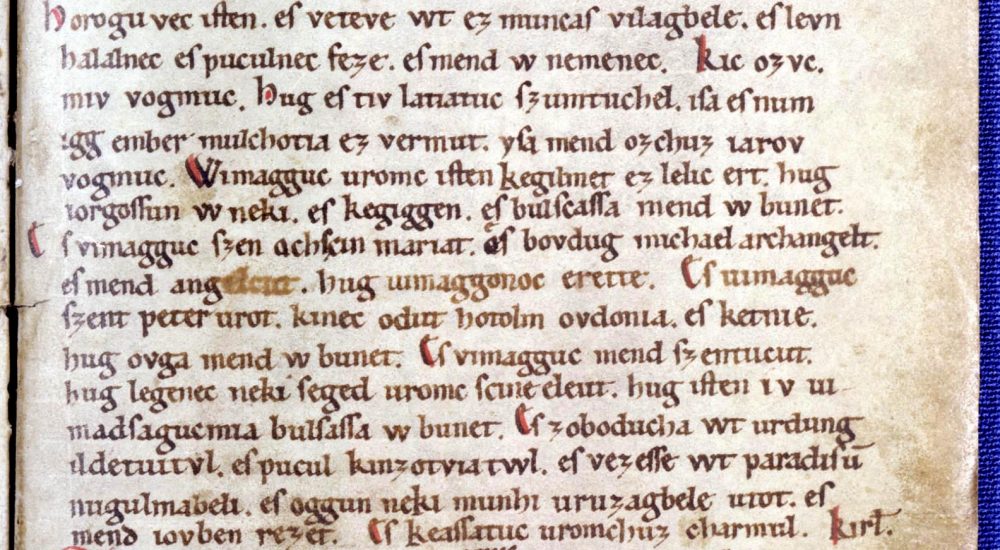 horogu vec iſten. eſ veteve wt ez muncaſ vilagbele. eſ levn
halalnec eſ puculnec feze. eſ mend w nemenec. Kic ozvc.
miv vogmuc. Hug eſ tiv latiatuc ſzumtuchel. iſa eſ num
igg ember mulchotia ez vermut. yſa mend ozchuz iarov
vogmuc. Wimagguc uromc iſten kegilmet ez lelic ert. hug
iorgoſſun w neki. eſ kegiggen. eſ bulſcaſſa mend w bunet.
Eſ vimagguc ſzen achſcin mariat. eſ bovdug michael archangelt.
eſ mend angelcut. hug uimaggonoc erette. Eſ uimagguc
ſzent peter urot. kinec odut hotolm ovdonia. eſ ketnie.
hug ovga mend w bunet. Eſ vimagguc mend ſzentucut.
hug legenec neki ſeged uromc ſcine eleut. hug iſten iv ui
madſagucmia bulſaſſa w bunet. Eſ zoboducha wt urdung
ildetuitvl. eſ pucul kinzotviatwl. eſ vezeſſe wt paradiſū
nugulmabeli. eſ oggun neki munhi uruzagbele utot. eſ
mend iovben rezet. Eſ keaſſatuc uromchuz charmul. Kirł.